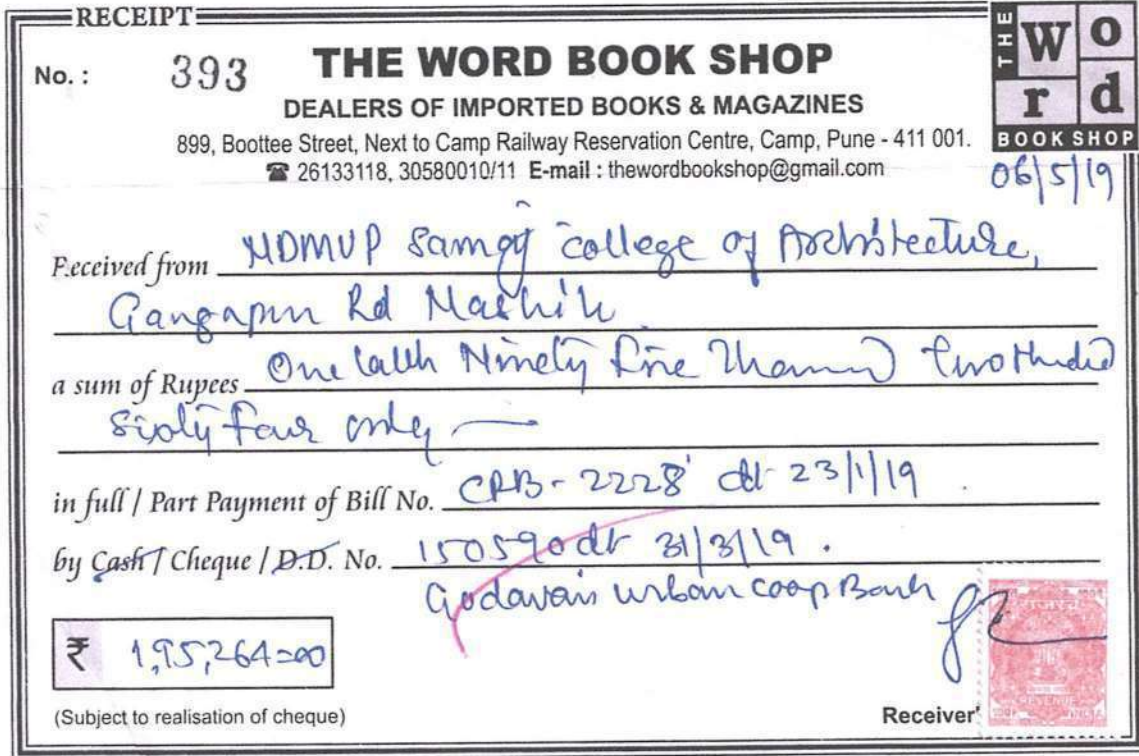 RECEIPT
No. : 393
THE WORD BOOK SHOP
THE Word
BOOK SHOP
DEALERS OF IMPORTED BOOKS & MAGAZINES
899, Boottee Street, Next to Camp Railway Reservation Centre, Camp, Pune - 411 001.
☎ 26133118, 30580010/11 E-mail : thewordbookshop@gmail.com
06/5/19
Received from NDMVP Samaj college of Architecture,
Gangapur Rd Nashik
a sum of Rupees One lakh Ninety Five Thousand two Hundred
Sixty Four only —
in full / Part Payment of Bill No. CRB-2228 dt 23/1/19
by Cash / Cheque / D.D. No. 150590 dt 31/3/19.
Godavari urban coop Bank
₹ 1,95,264=00
(Subject to realisation of cheque)
Receiver'
REVENUE